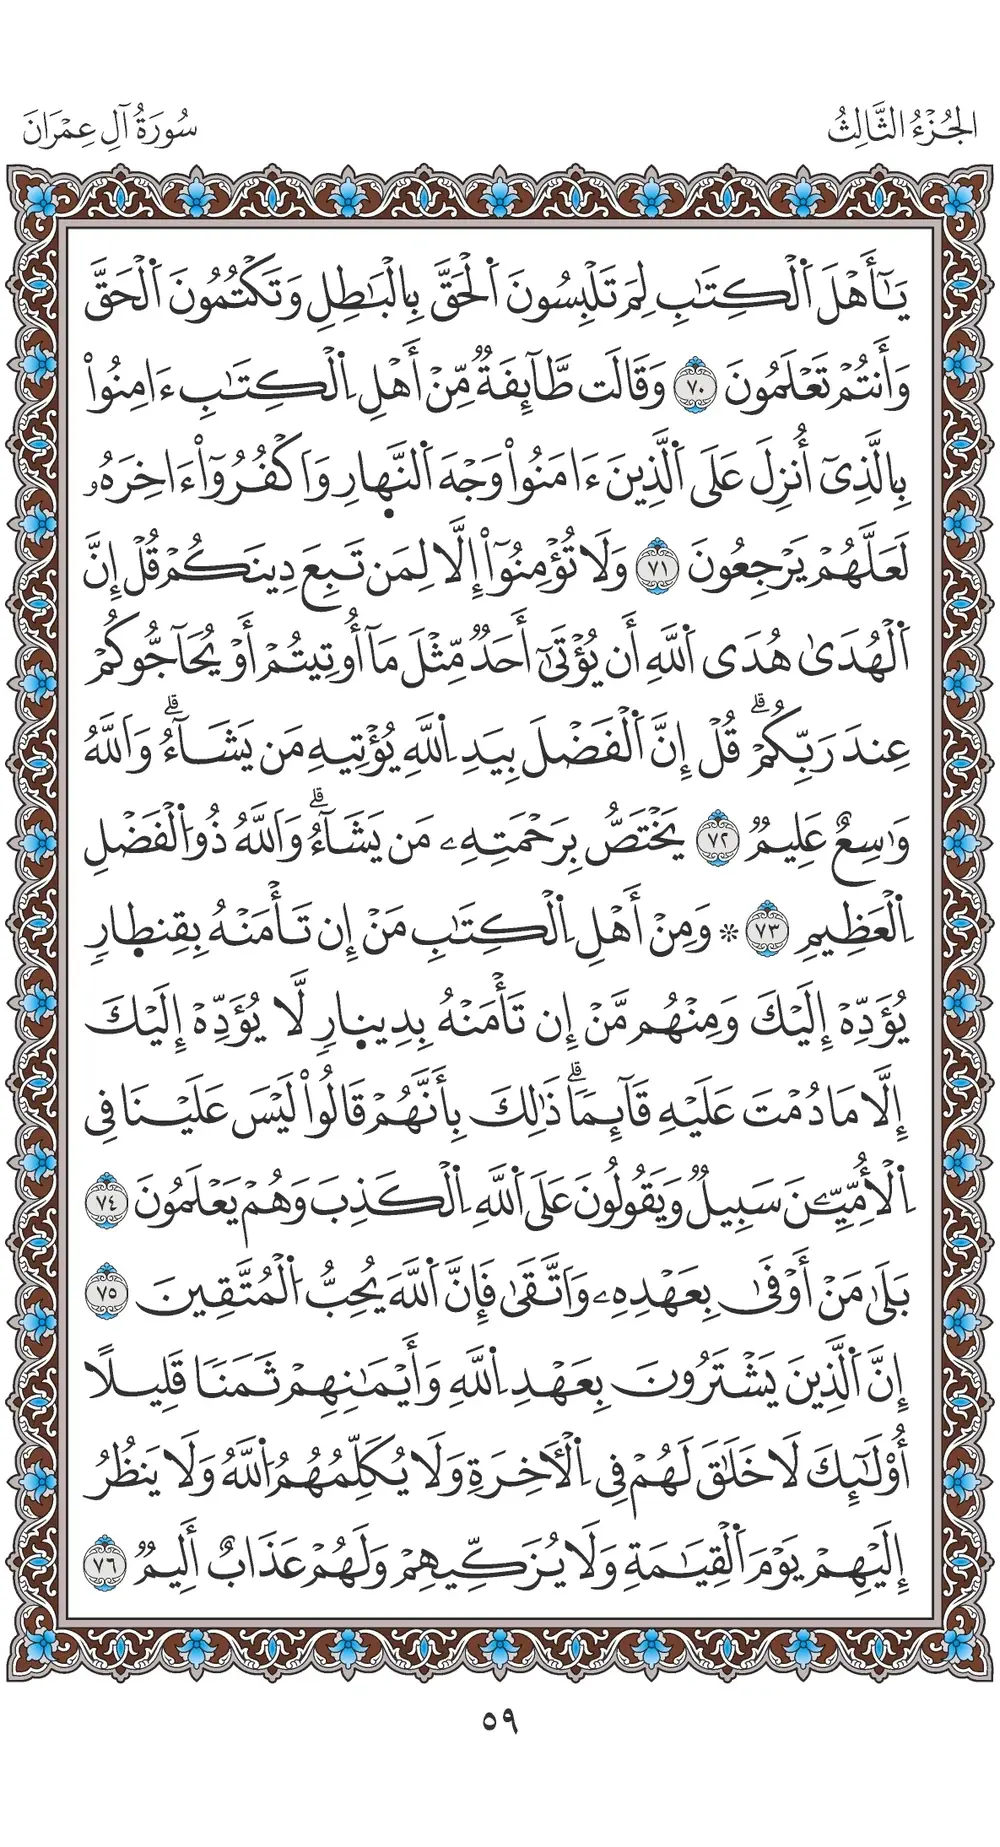 الجُزْءُ الثَّالِثُ
سُورَةُ آلِ عِمْرَانَ
يَٰٓأَهْلَ اَ۬لْكِتَٰبِ لِمَ تَلْبِسُونَ اَ۬لْحَقَّ بِالْبَٰطِلِ وَتَكْتُمُونَ اَ۬لْحَقَّ
وَأَنتُمْ تَعْلَمُونَ ٧٠ وَقَالَت طَّآئِفَةٞ مِّنْ أَهْلِ اِ۬لْكِتَٰبِ ءَامِنُواْ
بِالَّذِىٓ أُنزِلَ عَلَى اَ۬لَّذِينَ ءَامَنُواْ وَجْهَ اَ۬لنَّه۪ارِ وَاَكْفُرُوٓاْ ءَاخِرَهُۥ
لَعَلَّهُمْ يَرْجِعُونَ ٧١ وَلَا تُؤْمِنُوٓاْ إِلَّا لِمَن تَبِعَ دِينَكُمْ قُلْ إِنَّ
اَ۬لْهُدَىٰ هُدَى اَ۬للَّهِ أَن يُؤْتَىٰٓ أَحَدٞ مِّثْلَ مَآ أُوتِيتُمْ أَوْ يُحَآجُّوكُمْ
عِندَ رَبِّكُمْۗ قُلْ إِنَّ اَ۬لْفَضْلَ بِيَدِ اِ۬للَّهِ يُؤْتِيهِ مَن يَشَآءُۗ وَاَللَّهُ
وَٰسِعٌ عَلِيمٞ ٧٢ يَخْتَصُّ بِرَحْمَتِهِۦ مَن يَشَآءُۗ وَاَللَّهُ ذُو اُ۬لْفَضْلِ
اِ۬لْعَظِيمِ ٧٣ ۞ وَمِنْ أَهْلِ اِ۬لْكِتَٰبِ مَنْ إِن تَأْمَنْهُ بِقِنط۪ارٖ
يُؤَدِّهْ إِلَيْكَ وَمِنْهُم مَّنْ إِن تَأْمَنْهُ بِدِين۪ارٖ لَّا يُؤَدِّهْ إِلَيْكَ
إِلَّا مَا دُمْتَ عَلَيْهِ قَآئِمٗاۗ ذَٰلِكَ بِأَنَّهُمْ قَالُواْ لَيْسَ عَلَيْنَا فِى
اِ۬لْأُمِّيِّـۧنَ سَبِيلٞ وَيَقُولُونَ عَلَى اَ۬للَّهِ اِ۬لْكَذِبَ وَهُمْ يَعْلَمُونَ ٧٤
بَلَىٰ مَنْ أَوْفَىٰ بِعَهْدِهِۦ وَاَتَّقَىٰ فَإِنَّ اَ۬للَّهَ يُحِبُّ اُ۬لْمُتَّقِينَ ٧٥
إِنَّ اَ۬لَّذِينَ يَشْتَرُونَ بِعَهْدِ اِ۬للَّهِ وَأَيْمَٰنِهِمْ ثَمَنٗا قَلِيلًا
أُوْلَٰٓئِكَ لَا خَلَٰقَ لَهُمْ فِى اِ۬لْأٓخِرَةِ وَلَا يُكَلِّمُهُمُ اُ۬للَّهُ وَلَا يَنظُرُ
إِلَيْهِمْ يَوْمَ اَ۬لْقِيَٰمَةِ وَلَا يُزَكِّيهِمْ وَلَهُمْ عَذَابٌ أَلِيمٞ ٧٦
٥٩